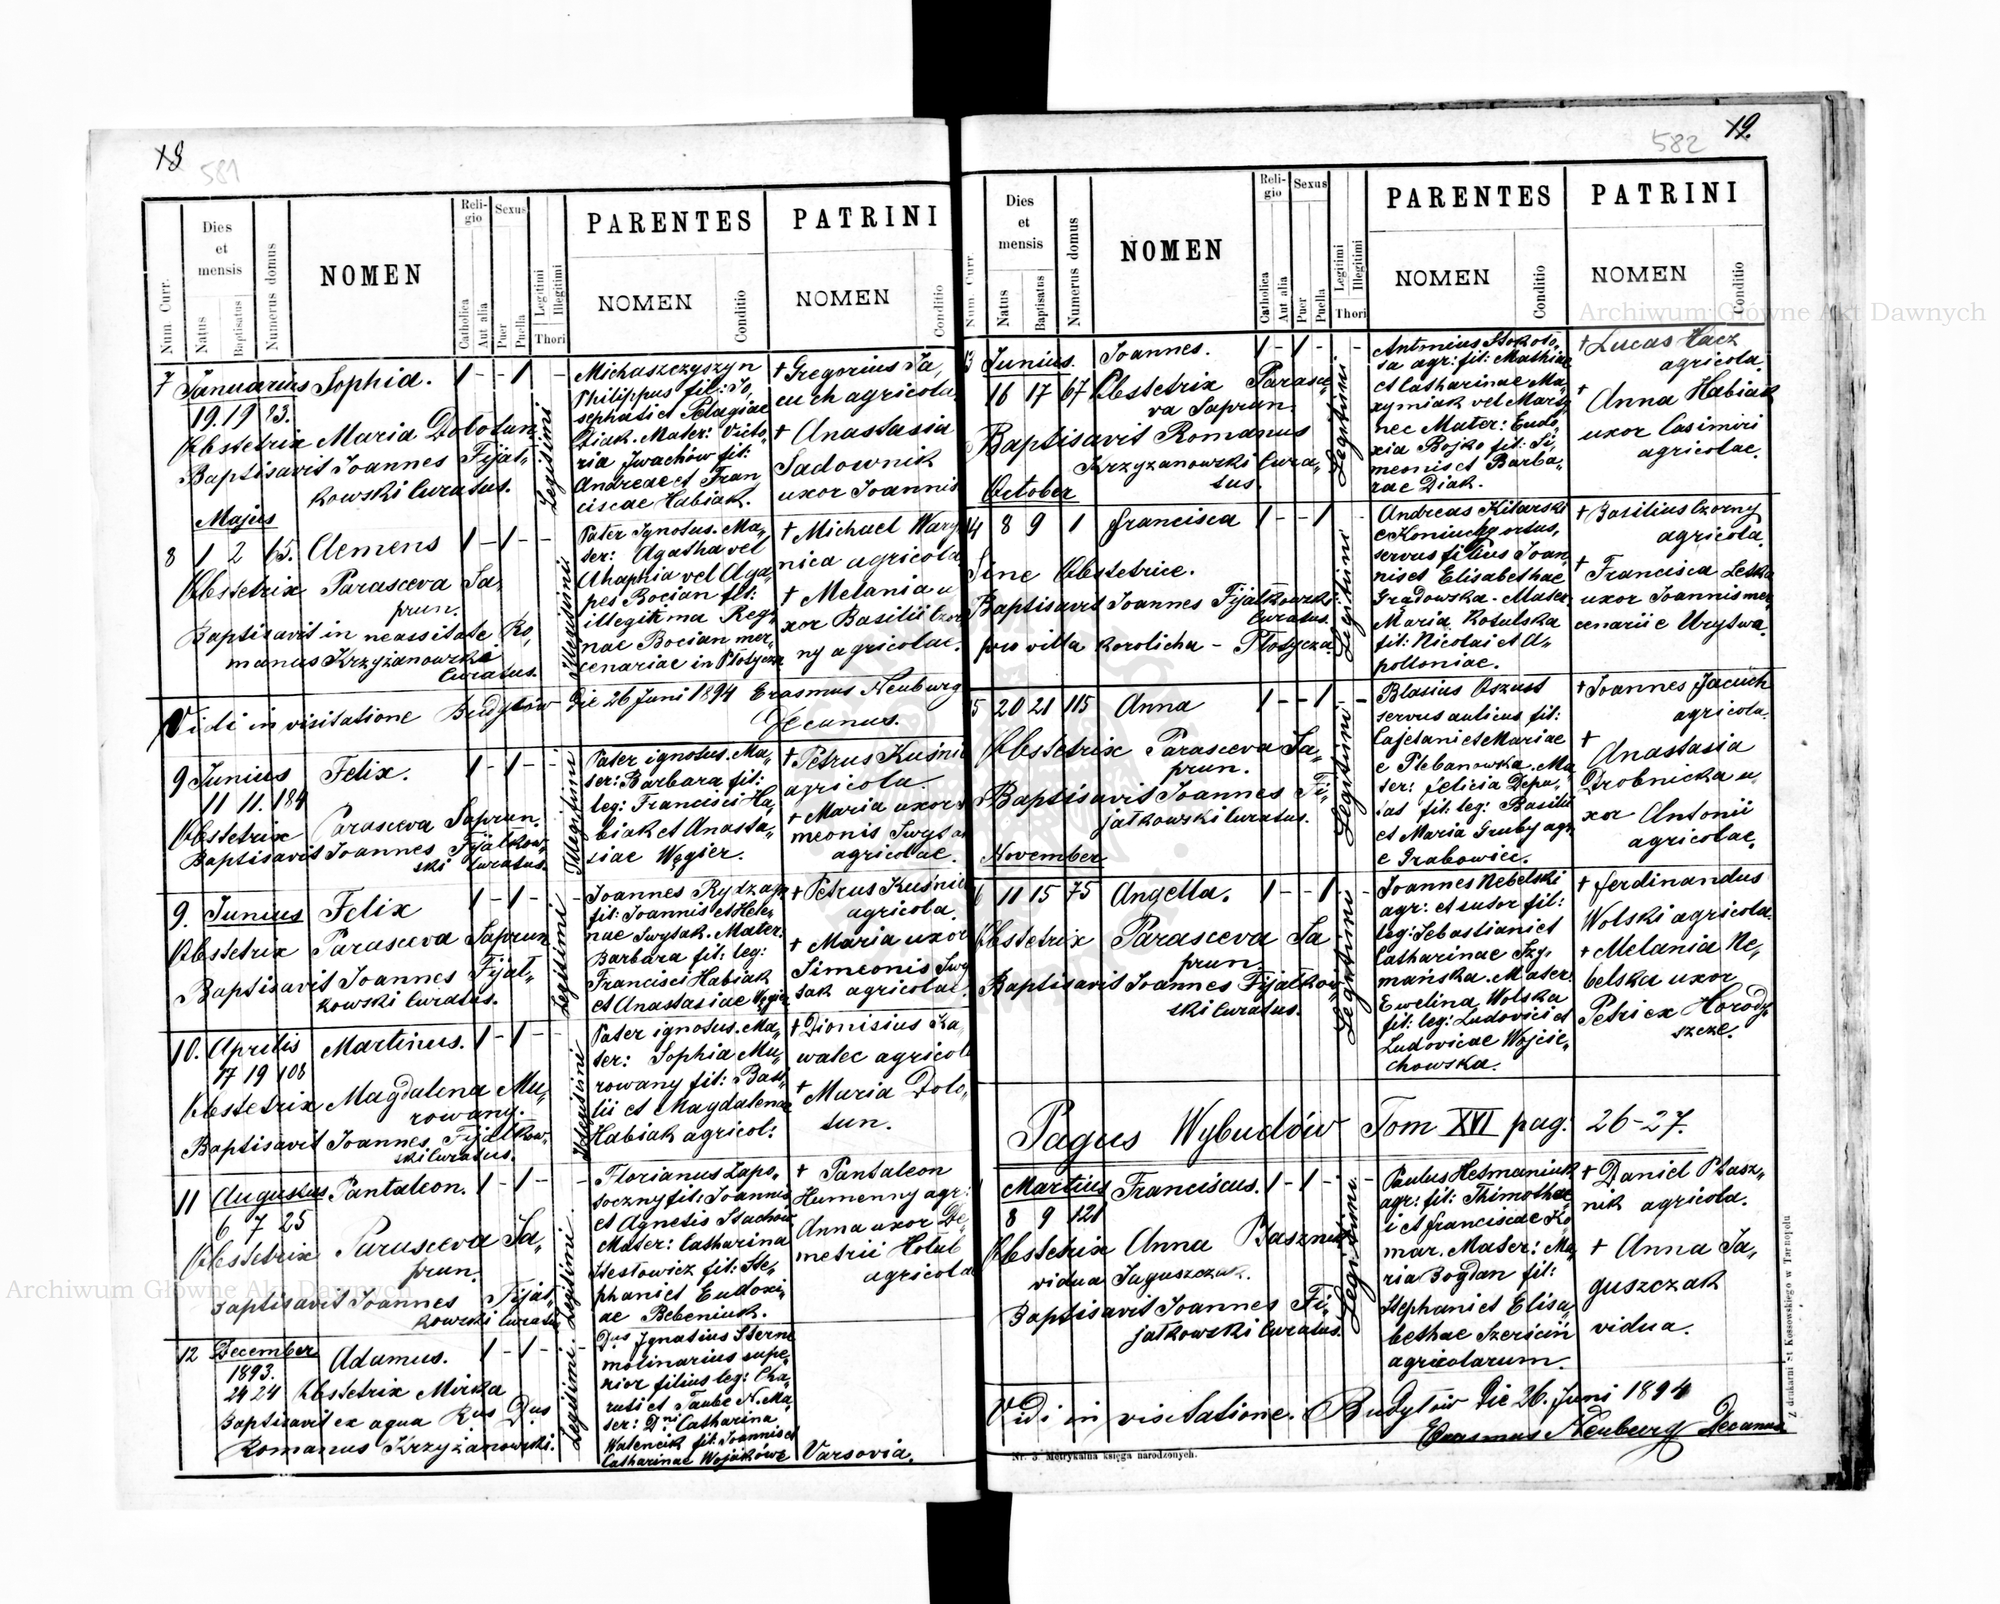 18
581
Num Curr.
Dies et mensis
Natus
Baptisatus
Numerus domus
NOMEN
Religio
Catholica
Aut alia
Sexus
Puer
Puella
Legitimi
Illegitimi
Thori
PARENTES
NOMEN
Conditio
PATRINI
NOMEN
Conditio
7 Januarius Sophia. 1 - - 1 -
19. 19 23.
Obstetrix Maria Dolotan
Baptisavit Joannes Fijał-
kowski Curatus.
Legitimi
Michaszczyszyn
Philippus fil: Jo,
sephati et Pelagiae
Diak. Mater: Victo-
ria Iwachów fil:
Andreae et Fran
ciscae Habiak.
+ Gregorius Ja,
cuch agricola.
+ Anastasia
Sadownik
uxor Joannis
Majus
8 1 2 15. Clemens 1 - 1 - -
Obstetrix Parasceva Sa,
prun.
Baptisavit in necessitate Ro,
manus Krzyżanowski
Curatus.
Illegitimi
Pater Ignotus. Ma,
ter: Agatha vel
Ahaphia vel Aga,
pes Bocian fil:
illegitima Regi,
nae Bocian mer,
cenariae in Płotycza
+ Michael Wary
nica agricola
+ Melania u
xor Basilii Czor
ny agricolae.
Vidi in visitatione Budyłów Die 26 Juni 1894 Erasmus Neuburg
Decanus.
9 Junius Felix. 1 - 1 - -
11 11. 184
Obstetrix Parasceva Saprun.
Baptisavit Joannes Fijałkow,
ski Curatus.
Illegitimi
Pater ignotus. Ma,
ter: Barbara fil:
leg: Francisci Ha,
biak et Anasta,
siae Węgier.
+ Petrus Kuśnir
agricola
+ Maria uxor Si
meonis Swytak
agricolae.
9. Junius Felix 1 - 1 - -
Obstetrix Parasceva Saprun
Baptisavit Joannes Fijał-
kowski Curatus.
Legitimi
Joannes Rydzap
fil: Joannis et Hele,
nae Swytak. Mater:
Barbara fil: leg:
Francisci Habiak
et Anastasiae Węgier
+ Petrus Kuśnir
agricola.
+ Maria uxor
Simeonis Swy
tak agricolae.
10. Aprilis Martinus. 1 - 1 - -
17 19 108
Obstetrix Magdalena Mu,
rowany.
Baptisavit Joannes Fijałkow,
ski Curatus.
Illegitimi
Pater ignotus. Ma,
ter: Sophia Mu,
rowany fil: Basi,
lii et Magdalenae
Habiak agricol:
+ Dionisius Ka,
walec agricola
+ Maria Dolo,
tun.
11 Augustus Pantaleon. 1 - 1 - -
6 7 25
Obstetrix Parasceva Sa,
prun.
Baptisavit Joannes Fijał-
kowski Curatus
Legitimi
Florianus Łapo,
soczny fil: Joannis
et Agnetis Stachów
Mater: Catharina
Stestowicz fil: Ste,
phani et Eudoxi,
ae Bebeniuk.
+ Pantaleon
Humenny agr:
Anna uxor De,
metrii Hołub
agricola
12 December Adamus. 1 - 1 - -
1893.
24 24 Obstetrix Mirka
Baptisavit ex aqua Rus Dus
Romanus Krzyżanowski.
Legitimi
Dus Ignatius Stern
molinarius supe,
rior filius leg: Cha,
ruti et Taube N. Ma,
ter: Dni Catharina
Walencik fil: Joannis et
Catharinae Wojaków e Varsovia.
19.
582
Num. Curr.
Dies et mensis
Natus
Baptisatus
Numerus domus
NOMEN
Religio
Catholica
Aut alia
Sexus
Puer
Puella
Legitimi
Illegitimi
Thori
PARENTES
NOMEN
Conditio
PATRINI
NOMEN
Conditio
13 Junius. Joannes. 1 - 1 - -
16 17 67 Obstetrix Parasce,
va Saprun.
Baptisavit Romanus
Krzyzanowski Cura,
tus.
Legitimi
Antonius Stokoło,
sa agr: fil: Mathiae
et Catharinae Ma,
xymiak vel Marcy
nec Mater: Eudo,
xia Bojko fil: Si,
meonis et Barba,
rae Diak.
+ Lucas Hacz
agricola.
+ Anna Habiak
uxor Casimiri
agricolae.
October
14 8 9 1 Francisca 1 - - 1 -
Sine Obstetrice.
Baptisavit Joannes Fijałkowski
Curatus.
pro villa Korolicha - Płotycza
Legitimi
Andreas Kitarski
e Koniuchy ortus,
servus filius Joan,
nis et Elisabethae
Gradowska - Mater
Maria Kotulska
fil: Nicolai et A,
polloniae.
+ Basilius Czorny
agricola.
+ Francisca Letka
uxor Joannis mer,
cenarii e Urytwa.
15 20 21 115 Anna 1 - - 1 -
Obstetrix Parasceva Sa,
prun.
Baptisavit Joannes Fi,
jałkowski Curatus.
Legitimi
Blasius Oszust
servus aulicus fil:
Cajetani et Mariae
e Plebanowska. Ma,
ter: Felicia Depu,
tat fil: leg: Basilii
et Maria Gruby agr:
e Grabowiec.
+ Joannes Jacuch
agricola.
+ Anastasia
Drobnicka u,
xor Antonii
agricolae.
November
16 11 15 75 Angella. 1 - - 1 -
Obstetrix Parasceva Sa
prun.
Baptisavit Joannes Fijałkow,
ski Curatus.
Legitimi
Joannes Nebelski
agr: et sutor fil:
leg: Sebastiani et
Catharinae Szy,
mańska. Mater:
Ewelina Wolska
fil: leg: Ludovici et
Ludovicae Wojcie,
chowska.
+ Ferdinandus
Wolski agricola
+ Melania Ne,
belska uxor
Petri ex Horody,
szcze.
Pagus Wybudów Tom XVI pag: 26-27.
1 Martius Franciscus. 1 - 1 - -
8 9 121
Obstetrix Anna Basznik
vidua Jaguszczak.
Baptisavit Joannes Fi,
jałkowski Curatus.
Legitimi
Paulus Hetmaniuk
agr: fil: Thimothe
i et Franciscae Ko
mar. Mater: Ma,
ria Bogdan fil:
Stephani et Elisa,
bethae Szerściń
agricolarum.
+ Daniel Ptasz,
nik agricola.
+ Anna Ja,
guszczak
vidua.
Vidi in visitatione. Budyłów Die 26. Juni 1894
Erasmus Neuburg Decanus
Nr. 3. Metrykalna księga narodzonych.
Z drukarni St Kossowskiego w Tarnopolu
Archiwum Główne Akt Dawnych
Archiwum Główne Akt Dawnych